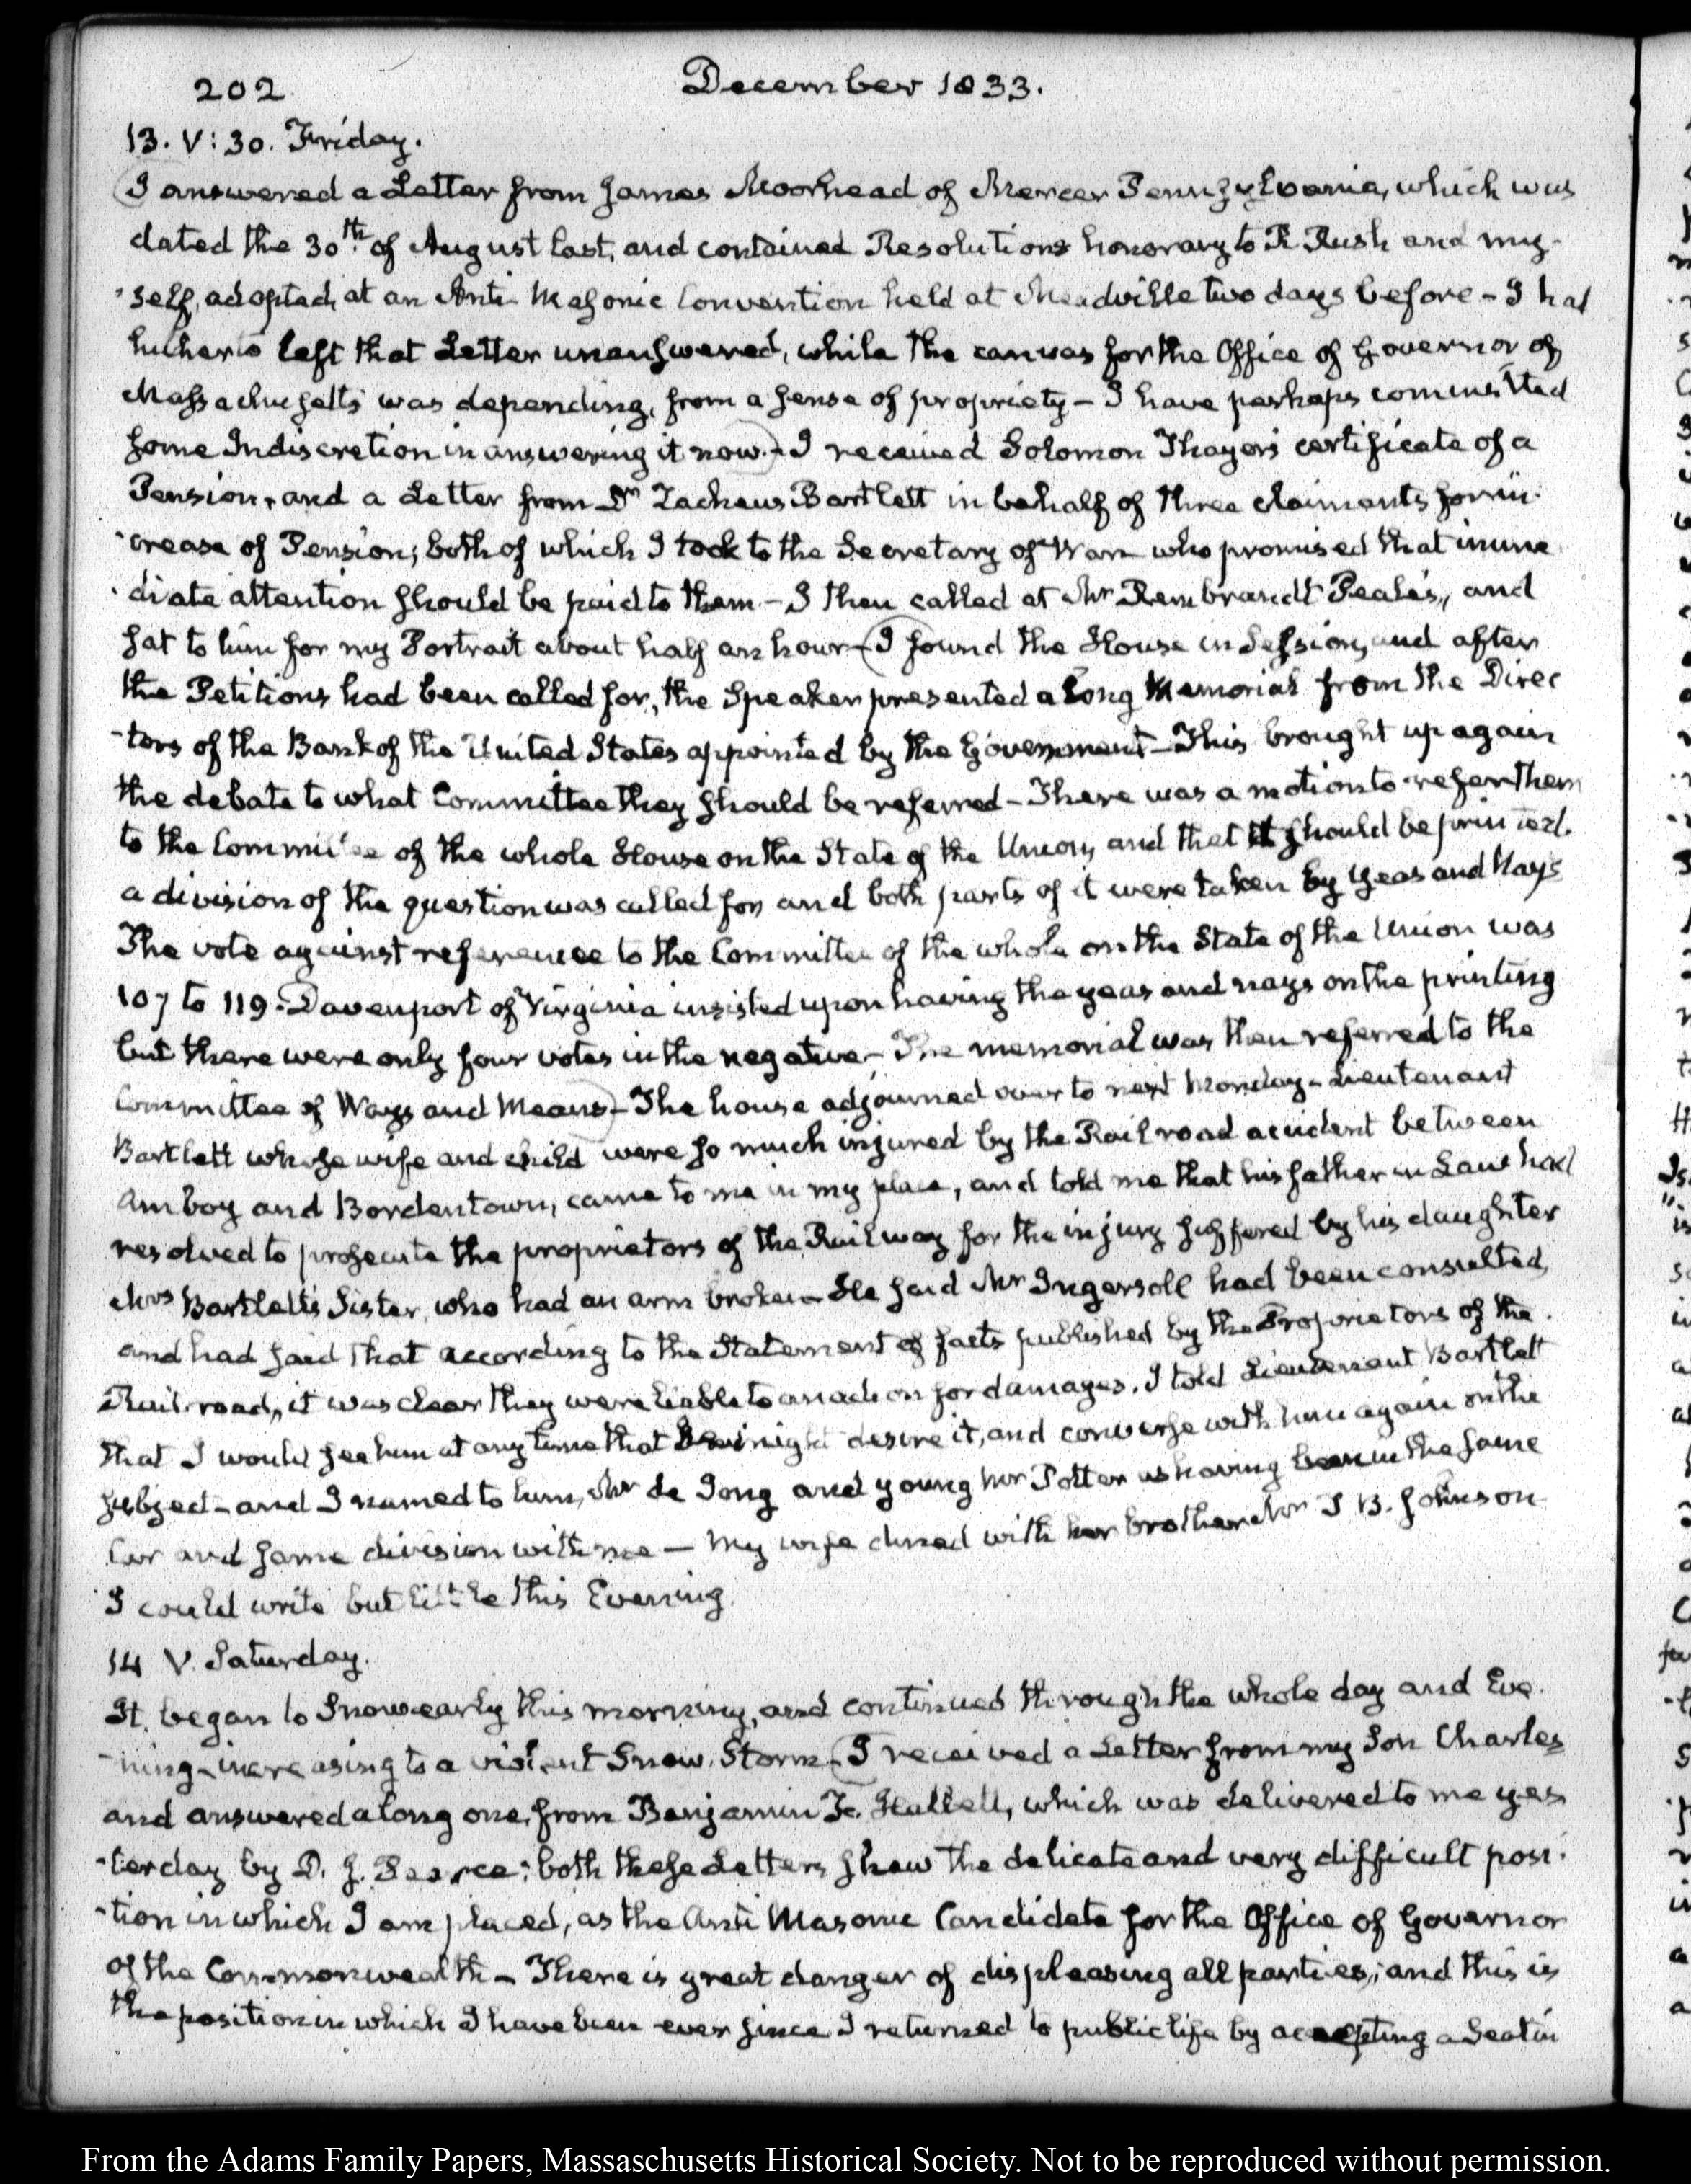 202
December 1833.
13. V:30. Friday.
I answered a Letter from James Moorhead of Mercer Pennsylvania, which was
dated the 30th of August last, and contained Resolutions honorary to R. Rush and my-
-self, adopted, at an Anti-Masonic Convention held at Meadville two days before - I had
hitherto left that Letter unanswered, while the canvas for the Office of Governor of
Massachusetts was depending, from a sense of propriety - I have perhaps committed
some Indiscretion in answering it now. - I received Solomon Thayer's certificate of a
Pension, and a Letter from Dr Zacheus Bartlett in behalf of three claimants for in-
-crease of Pension; both of which I took to the Secretary of War who promised that imme-
-diate attention should be paid to them - I then called at Mr Rembrandt Peale's, and
sat to him for my Portrait about half an hour - I found the House in Session, and after
the Petitions had been called for, the Speaker presented a long Memorial from the Direc
-tors of the Bank of the United States appointed by the Government - This brought up again
the debate to what Committee they should be referred - There was a motion to refer them
to the Committee of the whole House on the State of the Union, and that it should be printed.
a division of the question was called for and both parts of it were taken by Yeas and Nays
The vote against reference to the Committee of the whole on the State of the Union was
107 to 119. Davenport of Virginia insisted upon having the yeas and nays on the printing
but there were only four votes in the negative - The memorial was then referred to the
Committee of Ways and Means - The house adjourned over to next Monday - Lieutenant
Bartlett whose wife and child were so much injured by the Rail road accident between
Amboy and Bordentown, came to me in my place, and told me that his father in Law had
resolved to prosecute the proprietors of the Rail way for the injury suffered by his daughter
Mrs Bartlett's Sister, who had an arm broken - He said Mr Ingersoll had been consulted,
and had said that according to the Statement of facts published by the Proprietors of the
Rail-road, it was clear they were liable to an action for damages. I told Lieutenant Bartlett
that I would see him at any time that might desire it, and converse with him again on the
subject - and I named to him, Mr de Jong and young Mr Potter as having been in the same
Car and same division with me - My wife dined with her brother Mr T B. Johnson
I could write but little this Evening.
14 V. Saturday.
It began to Snow early this morning, and continued through the whole day and Eve-
-ning - increasing to a violent Snow Storm - I received a Letter from my Son Charles
and answered a long one, from Benjamin F. Hallett, which was delivered to me yes
-terday by D. J. Pearce: both these Letters shew the delicate and very difficult posi-
-tion in which I am placed, as the Anti Masonic Candidate for the Office of Governor
of the Commonwealth - There is great danger of displeasing all parties, and this is
the position in which I have been ever since I returned to public life by accepting a Seat in
From the Adams Family Papers, Massachusetts Historical Society. Not to be reproduced without permission.